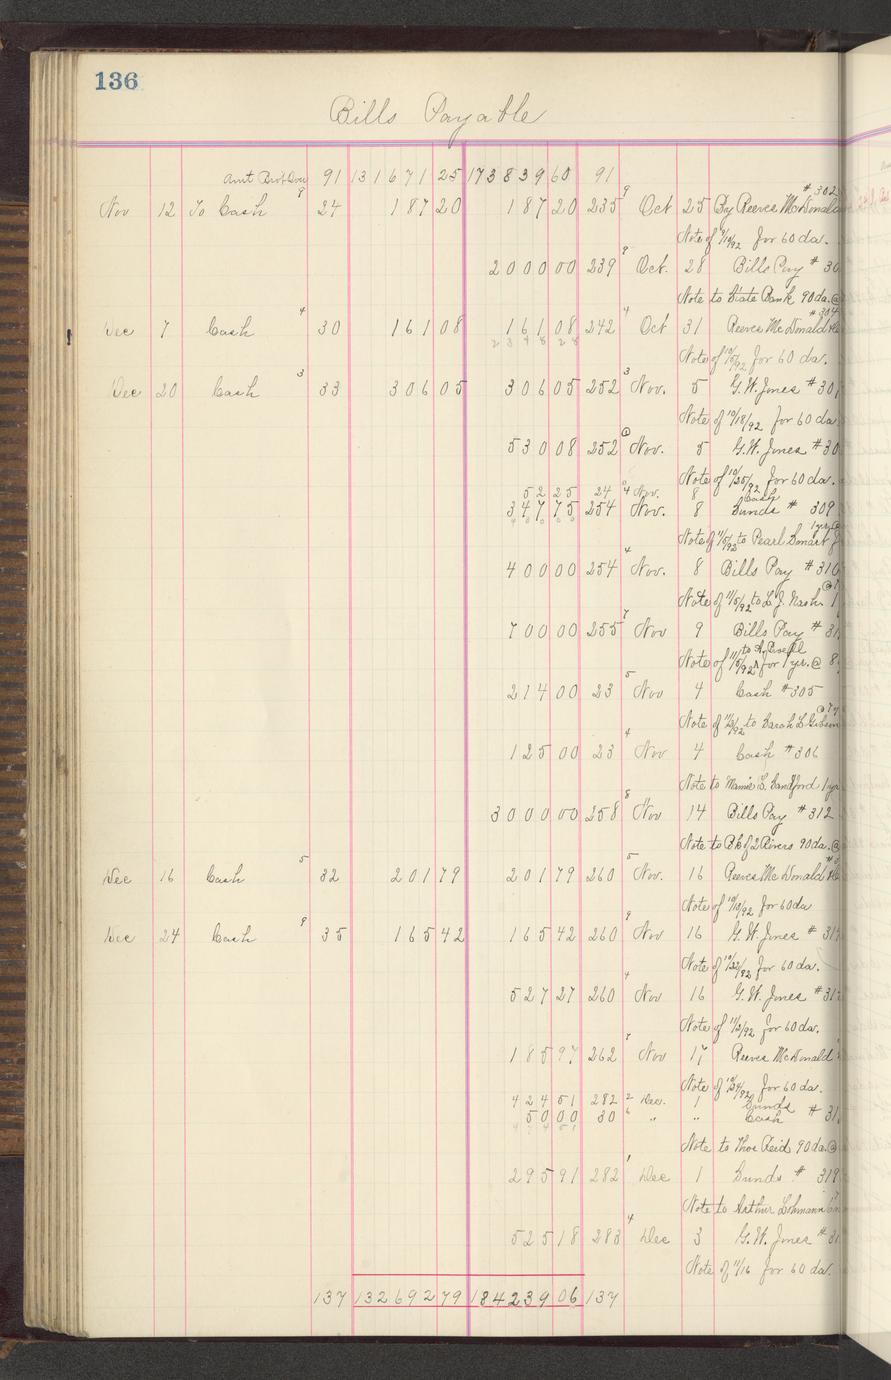 136
Bills Payable
Amt Brot Over 91 131671 25 173839 60 91
Nov 12 To Cash 9 24 187 20 187 20 235 9 Oct 25 By Reeves McDonald # 302
Note of 9/10/92 for 60 da.
2000 00 239 9 Oct. 28 Bills Pay # 30
Note to State Bank 90 da. @
Dec 7 Cash 4 30 161 08 161 08 242 4 Oct 31 Reeves McDonald # 304
2348 28
Note of 10/5/92 for 60 da.
Dec 20 Cash 3 33 306 05 306 05 252 3 Nov. 5 G.W. Jones # 30
Note of 10/18/92 for 60 da
530 08 252 Nov. 5 G.W. Jones # 30
Note of 10/25/92 for 60 da.
52 25 24 4 Nov. 8 Cash
347 75 254 Nov. 8 Sunds # 309
Note of 11/5/92 to Pearl Smart 1 yr @
400 00 254 4 Nov. 8 Bills Pay # 310
Note of 11/5/92 to L. J. Nash 1 @ 7
700 00 255 7 Nov 9 Bills Pay # 31
Note of 11/5/92 to A. for 1 yr. @ 8
214 00 23 5 Nov 4 Cash # 305
Note of to Sarah L Gibson @ 7
125 00 23 4 Nov 4 Cash # 306
Note to Mamie L. Sandford 1 yr
3000 00 258 8 Nov 14 Bills Pay # 312
Note to Bk of 2 Rivers 90 da. @
Dec 16 Cash 5 32 201 79 201 79 260 5 Nov. 16 Reeves McDonald #
Note of 10/13/92 for 60 da
Dec 24 Cash 9 35 165 42 165 42 260 9 Nov 16 G.W. Jones # 31
Note of 10/22/92 for 60 da.
527 27 260 4 Nov 16 G.W. Jones # 31
Note of 11/2/92 for 60 da.
185 97 262 8 Nov 17 Reeves McDonald
Note of 10/24/92 for 60 da.
424 51 282 2 Dec. 1 Sunds
50 00 30 6 " " Cash # 31
Note to Thos Reid 90 da @
295 91 282 1 Dec 1 Sunds # 319
Note to Arthur Lehmann
525 18 283 4 Dec 3 G.W. Jones # 31
Note of 11/16 for 60 da.
137 132692 79 184239 06 137